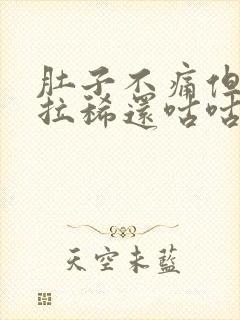 肚子不痛但
拉稀還咕咕
天空未藍